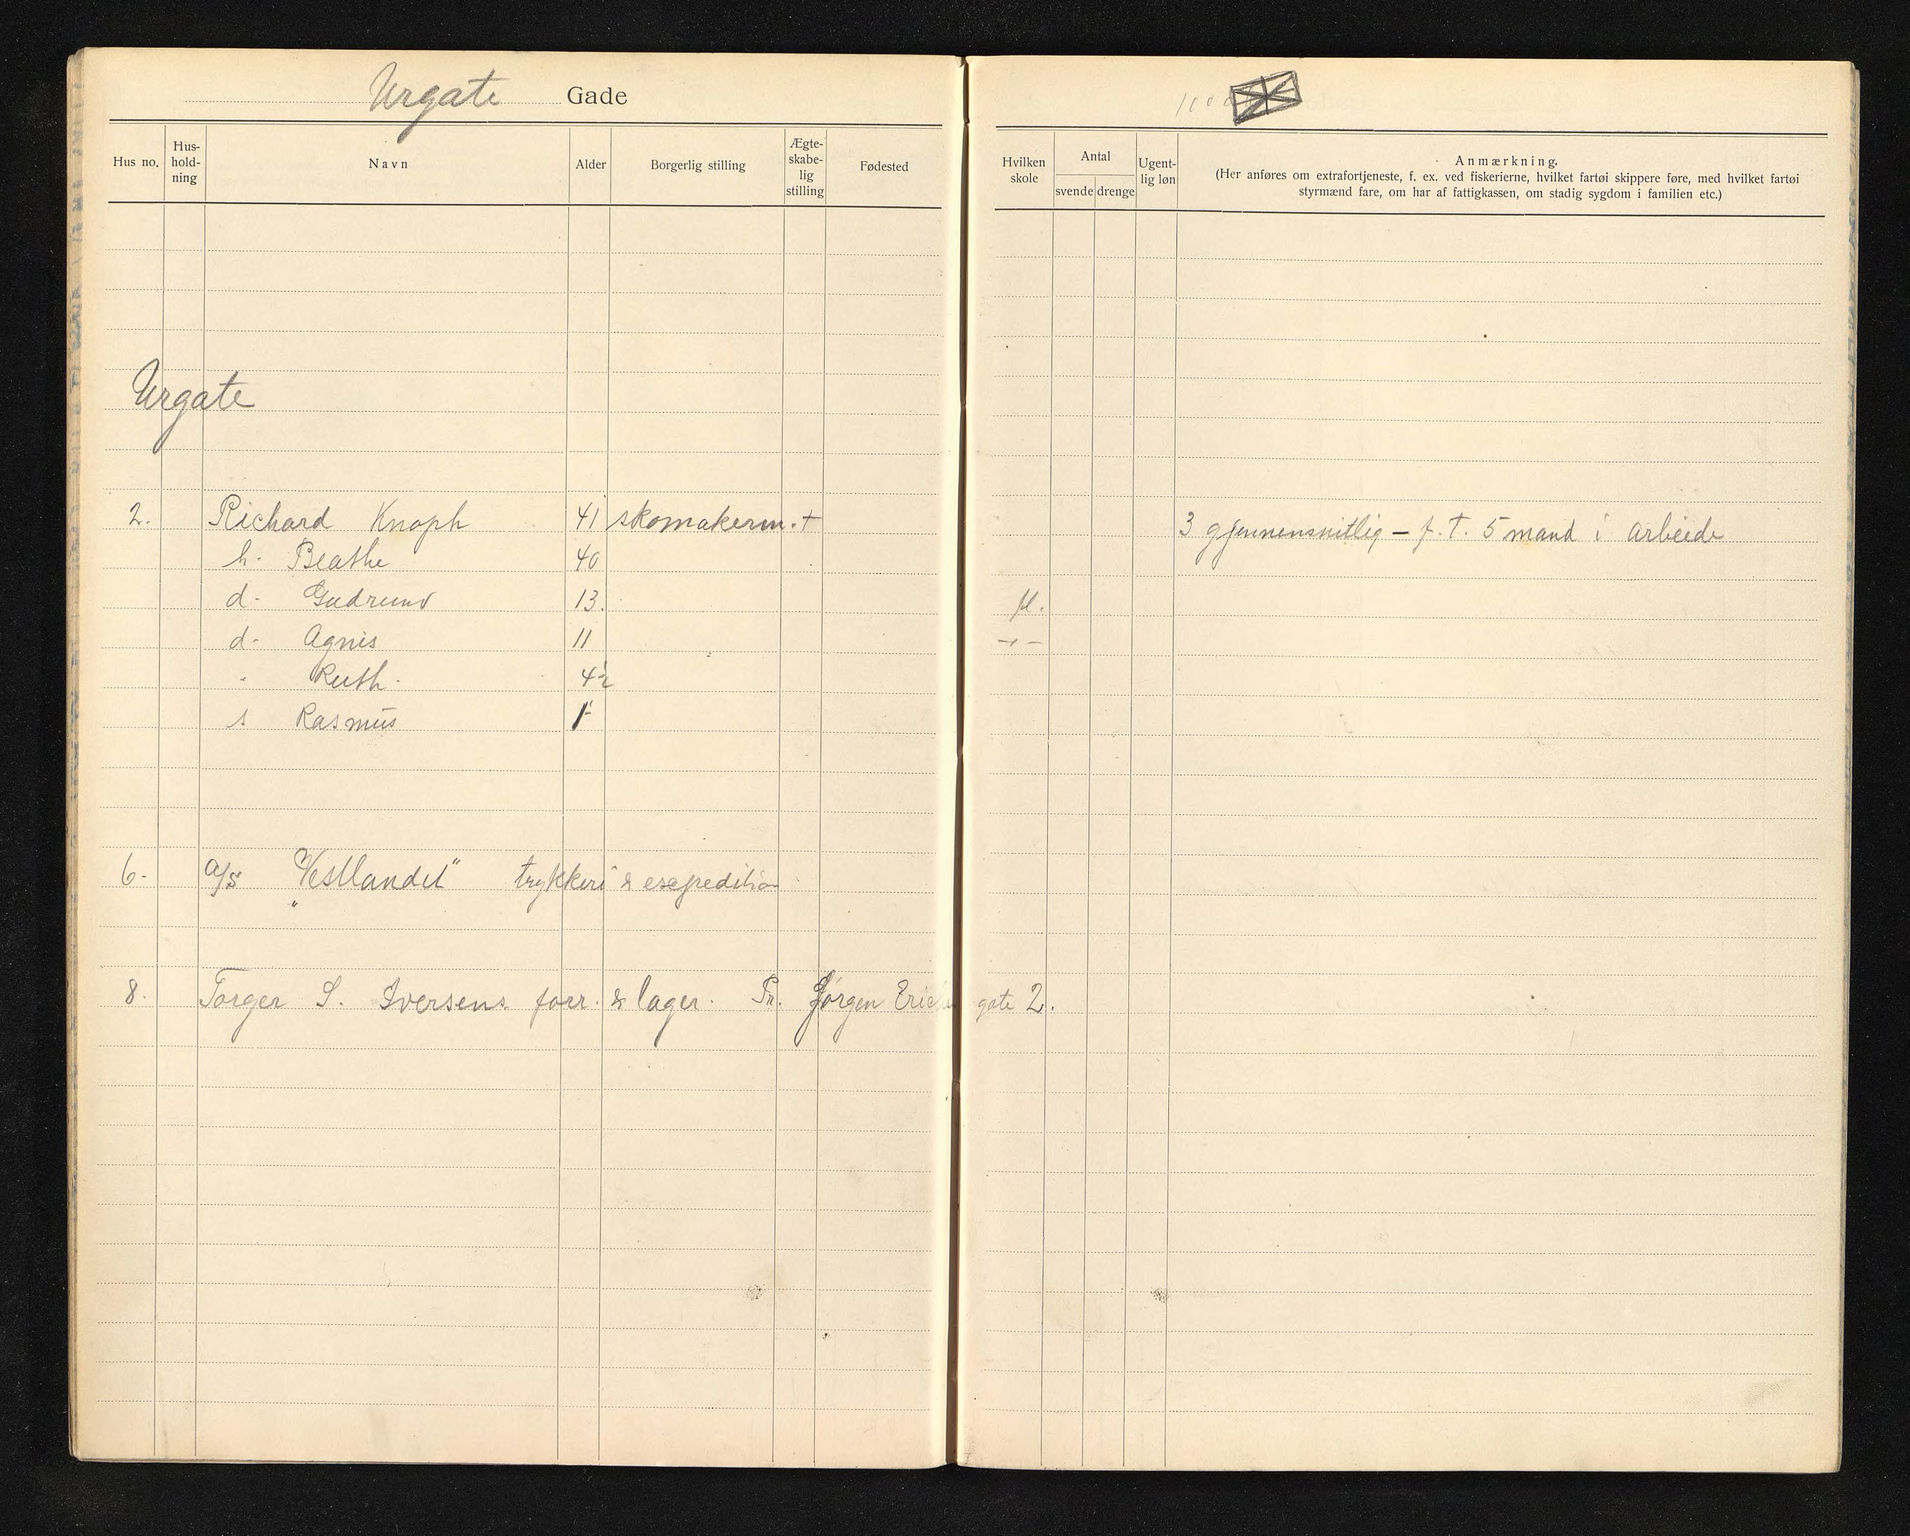 Urgate Gade
Hus no. Hus-hold-ning Navn Alder Borgerlig stilling Ægte-skabe-lig stilling Fødested
Urgate
2. Richard Knoph 41 skomakerm. +
h. Beathe 40
d. Gudrund 13.
d. Agnis 11
" Ruth. 4½
s Rasmus
6. a/s "Vestlandet" trykkeri & exspedition
8. Torger S. Iversens forr. & lager. Pr. Jørgen Erichs gate 2.
Hvilken skole Antal svende drenge Ugent-lig løn Anmærkning.
(Her anføres om extrafortjeneste, f. ex. ved fiskerierne, hvilket fartøi skippere føre, med hvilket fartøi
styrmænd fare, om har af fattigkassen, om stadig sygdom i familien etc.)
3 gjennensnitlig – f. T. 5 mand i arbeide
fl.
-"-